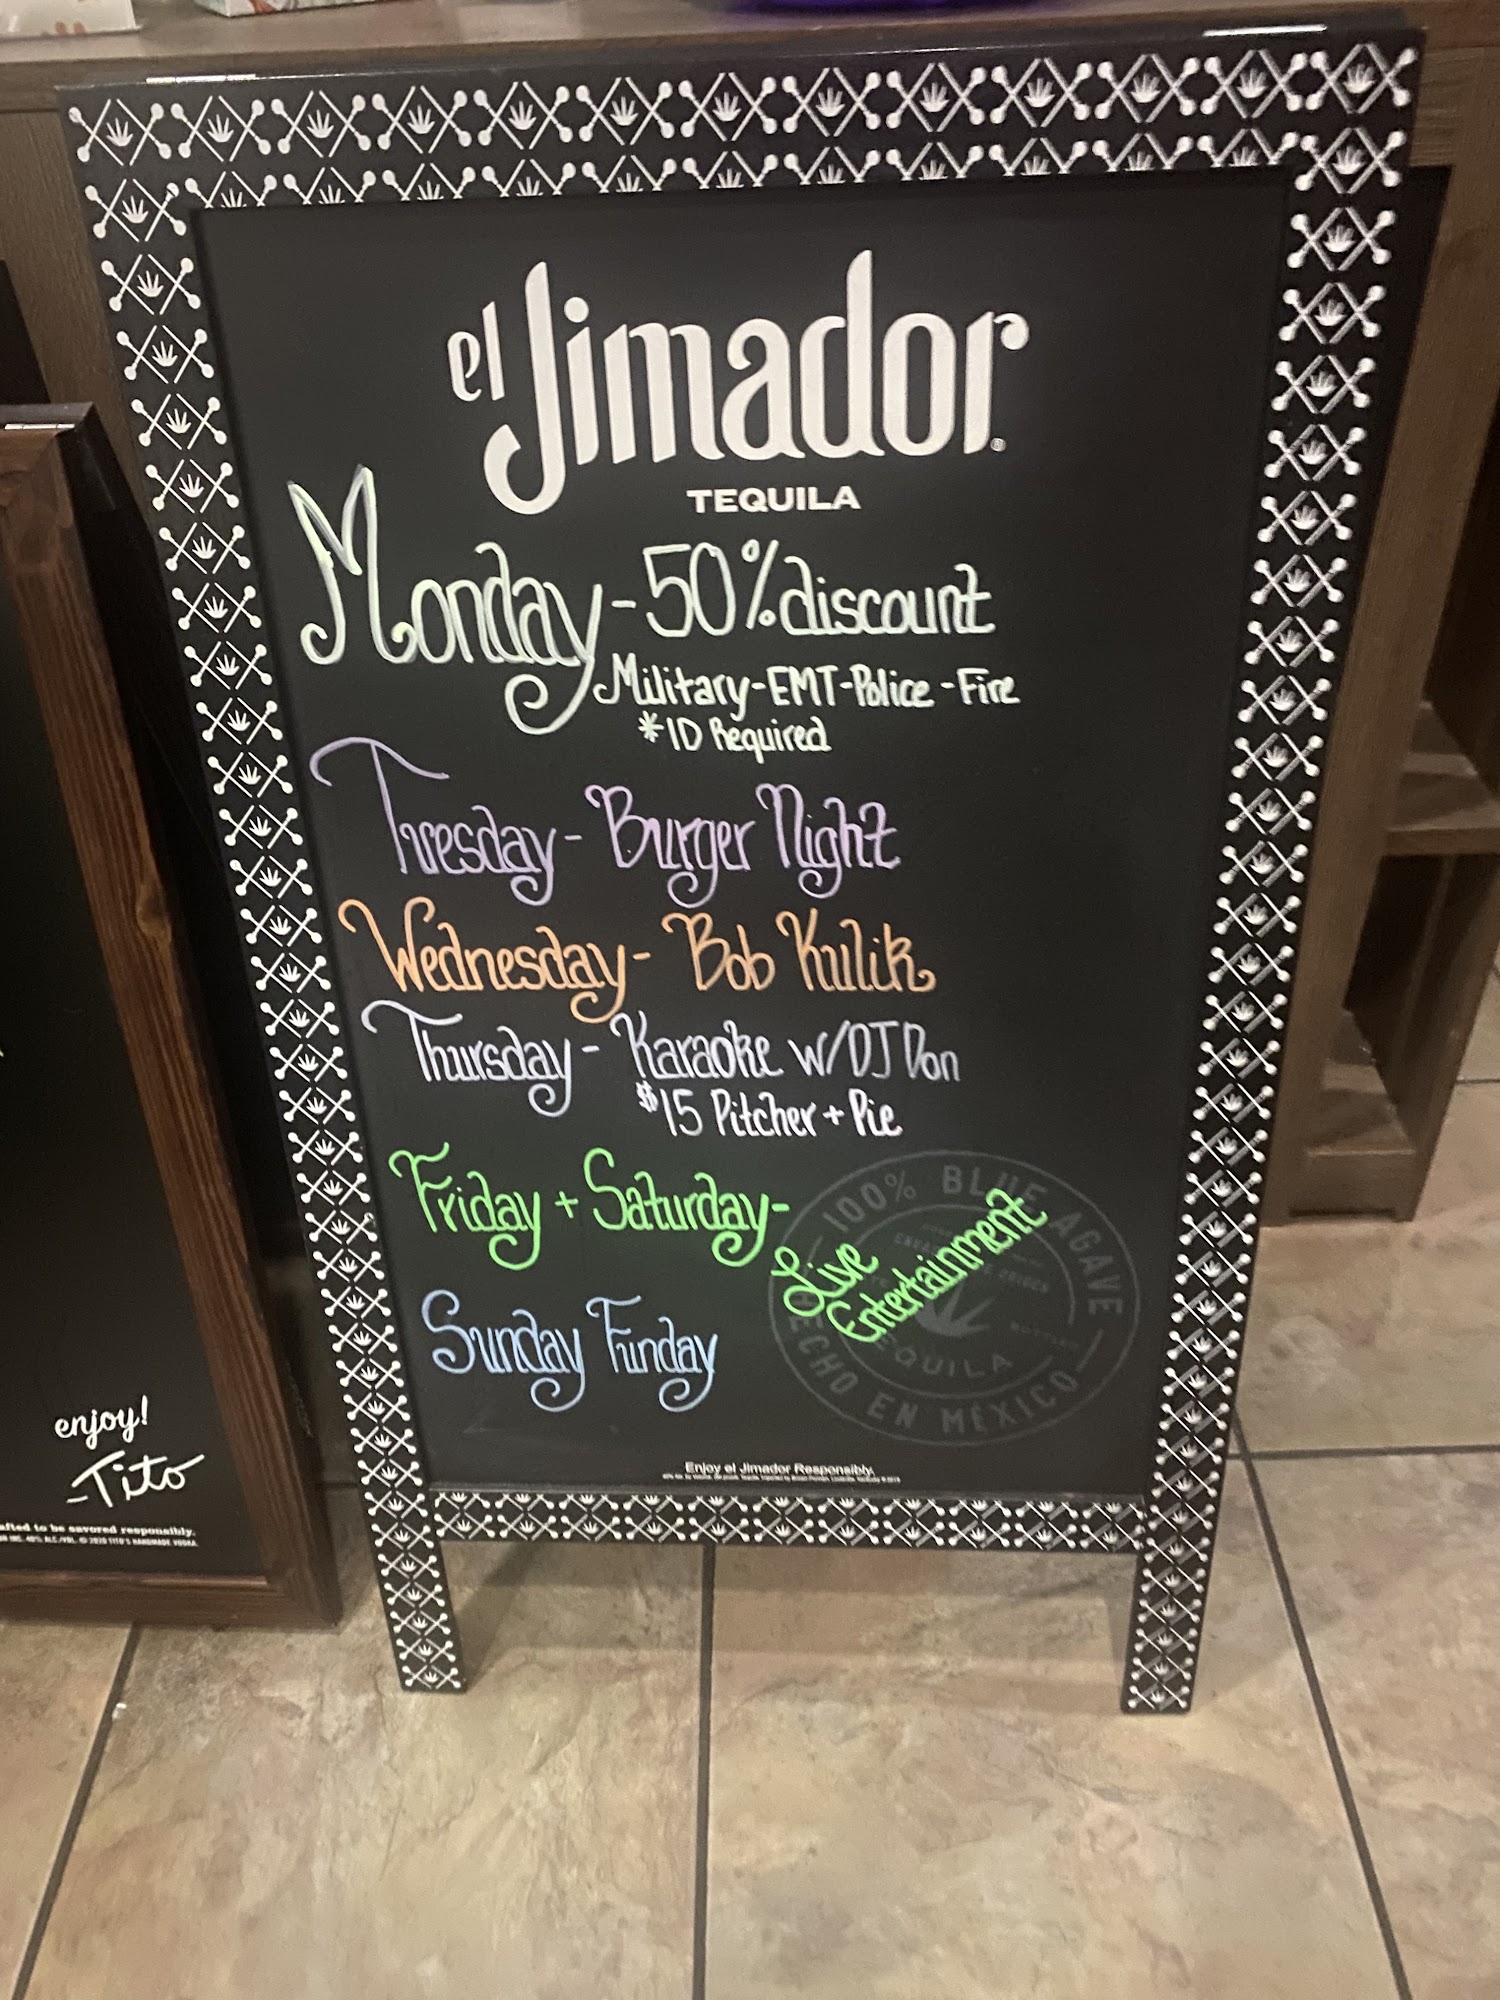 el Jimador®
TEQUILA
Monday - 50% discount
Military - EMT - Police - Fire
*ID Required
Tuesday - Burger Night
Wednesday - Bob Kulik
Thursday - Karaoke w/ DJ Don
$15 Pitcher + Pie
Friday + Saturday -
Live
Entertainment
Sunday Funday
100% BLUE AGAVE
TEQUILA
HECHO EN MÉXICO
Enjoy el Jimador Responsibly.
enjoy!
-Tito
afted to be savored responsibly.
INC. 40% ALC./VOL. © 2020 TITO'S HANDMADE VODKA.